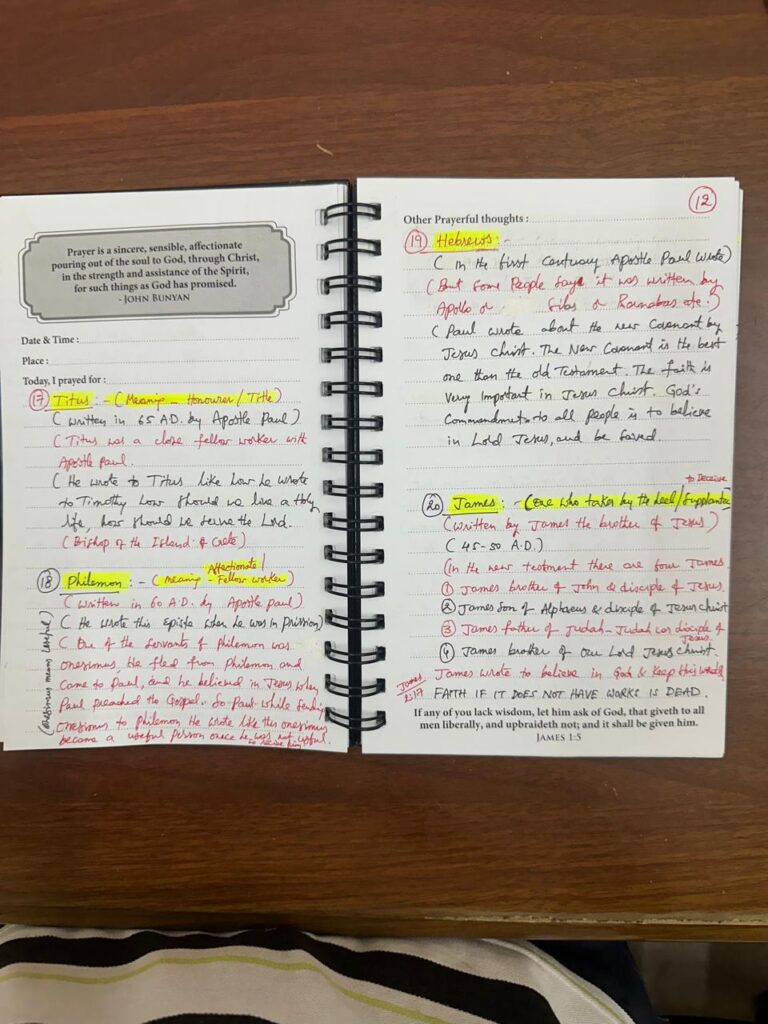 Prayer is a sincere, sensible, affectionate
pouring out of the soul to God, through Christ,
in the strength and assistance of the Spirit,
for such things as God has promised.
- JOHN BUNYAN
Date & Time :
Place :
Today, I prayed for :
17 Titus :- (Meaning - Honourer / Title)
( written in 65 A.D. by Apostle Paul)
( Titus was a close fellow worker with
Apostle Paul.
( He wrote to Titus like how he wrote
to Timothy how should we live a Holy
life, how should we serve the Lord.
( Bishop of the Island of Crete)
Affectionate /
18 Philemon :- ( meaning - Fellow worker)
( written in 60 A.D. by Apostle Paul)
( He wrote this Epistle when he was in prission)
( One of the servants of Philemon was
onesimus, He fled from Philemon and
came to Paul, and he believed in Jesus when
Paul preached the Gospel. So Paul while sending
onesimus to Philemon He wrote like this onesimus
became a useful person once he was not useful.
to recive him
(onesimus means useful)
12
Other Prayerful thoughts :
19 Hebrews :-
( In the first century Apostle Paul wrote)
( But some People says it was written by
Apollo or Silas or Barnabas etc.)
( Paul wrote about the new Covenant by
Jesus christ. The New Covenant is the best
one than the old Testament. The faith is
very Important in Jesus Christ. God's
Commandments to all people is to believe
in Lord Jesus, and be saved.
to Deceive
20 James :- (One who takes by the heel/Supplanter
(written by James the brother of Jesus)
( 45-50 A.D.)
(In the new testment there are four James.
1 James brother of John & disciple of Jesus.
2 James son of Alphaeus & disciple of Jesus christ
3 James father of Judah - Judah was disciple of
Jesus.
4 James brother of our Lord Jesus christ.
James wrote to believe in God & Keep his words
James 2:17 FAITH IF IT DOES NOT HAVE WORKS IS DEAD.
If any of you lack wisdom, let him ask of God, that giveth to all
men liberally, and upbraideth not; and it shall be given him.
JAMES 1:5